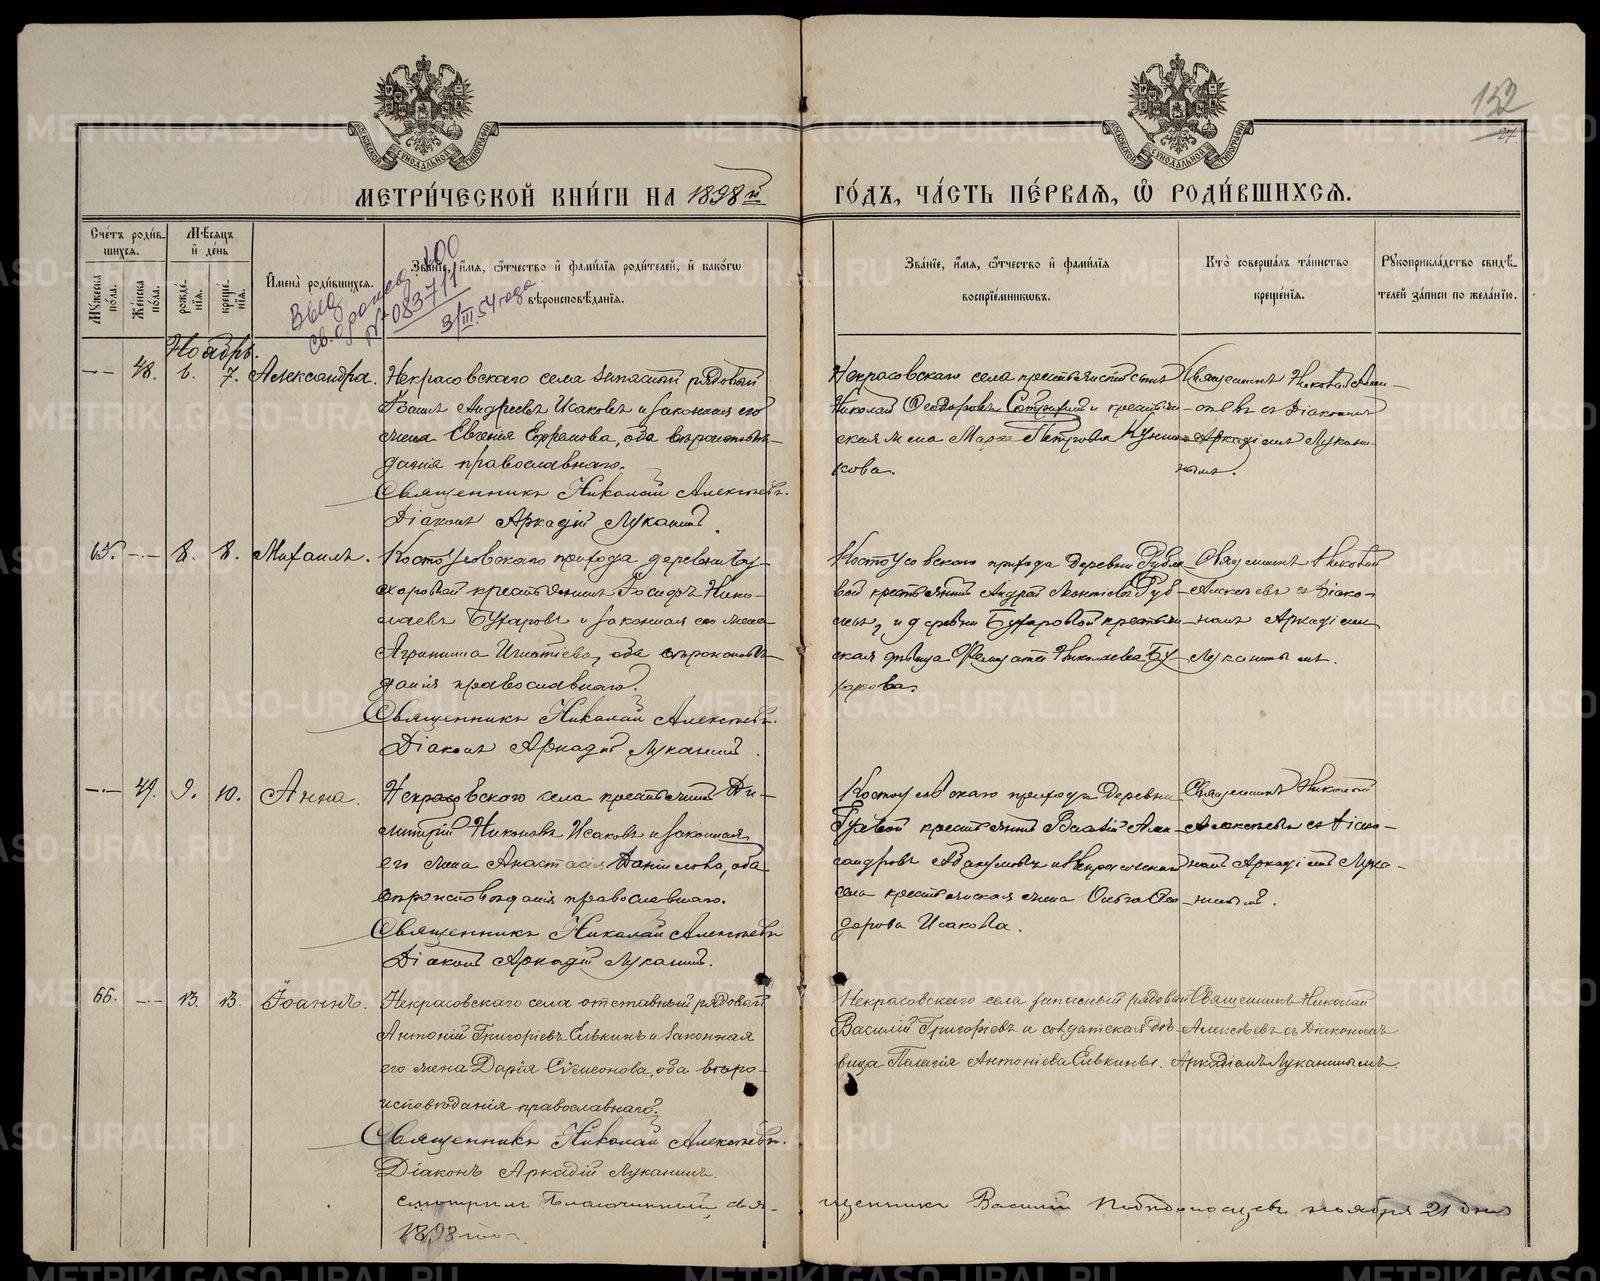 МЕТРИ́ЧЕСКОЙ КНИ́ГИ НА 1898 й ГО́ДЪ, ЧА́СТЬ ПЕ́РВАѦ, Ѡ҆ РОДИ́ВШИХСѦ.
152
27.
МОСКОВСКОЙ СУНОДАЛЬНОЙ ТИПОГРАФІИ
МОСКОВСКОЙ СУНОДАЛЬНОЙ ТИПОГРАФІИ
Сче́тъ роди́в-
шихся.
Му́жеска по́ла.
Же́нска по́ла.
Мѣ́сяцъ
и҆ де́нь
рожде́-
нїя.
креще́-
нїя.
И҆мена̀ роди́вшихся.
Зва́нїе, и҆́мя, ѻ҆́тчество и҆ фами́лїя роди́телей, и҆ како́гѡ
вѣроисповѣ́данїя.
Зва́нїе, и҆́мя, ѻ҆́тчество и҆ фами́лїя
воспрїе́мниковъ.
Кто̀ соверша́лъ та́инство
креще́нїя.
Рꙋкоприкла́дство свидѣ́-
телей за́писи по жела́нїю.
№ 083711
3/III.54 года
Ноябрь.
48. 6. 7. Александра.
Некрасовскаго села запасный рядовый
Іоаннъ Андреевъ Исаковъ и законная его
жена Евгенія Ефремова, оба вѣроисповѣ-
данія православнаго.
Священникъ Николай Алексѣевъ.
Діаконъ Аркадій Луканинъ.
Некрасовскаго села
Николай Ѳеодоровъ и крестьян-
ская жена Петрова Кунни-
кова.
Священникъ Николай Алек-
сѣевъ съ Діакономъ
Аркадіемъ Лукани-
нымъ.
65. 8. 8. Михаилъ.
Костоусовскаго прихода деревни Бу-
харовой крестьянинъ Нико-
лаевъ Бухаровъ и законная его жена
Агриппина Игнатіева, оба вѣроисповѣ-
данія православнаго.
Священникъ Николай Алексѣевъ.
Діаконъ Аркадій Луканинъ.
Костоусовскаго прихода деревни
крестьянинъ Андрей Леонтіевъ
и деревни Бухаровой крестьян-
ская дѣвица Николаева Бу-
харова.
Священникъ Николай
Алексѣевъ съ Діако-
номъ Аркадіемъ
Луканинымъ.
49. 9. 10. Анна.
Некрасовскаго села крестьянинъ Ди-
митрій Никоновъ Исаковъ и законная
его жена Анастасія Данилова, оба
вѣроисповѣданія православнаго.
Священникъ Николай Алексѣевъ
Діаконъ Аркадій Луканинъ.
Костоусовскаго прихода деревни
крестьянинъ Алек-
сандровъ и Некрасовскаго
села крестьянская жена Ольга Ѳео-
дорова Исакова.
Священникъ Николай
Алексѣевъ съ Діако-
номъ Аркадіемъ Лука-
нинымъ.
66. 13. 13. Іоаннъ.
Некрасовскаго села отставный рядовый
Антоній Григоріевъ Елькинъ и законная
его жена Дарія Сѵмеонова, оба вѣро-
исповѣданія православнаго.
Священникъ Николай Алексѣевъ.
Діаконъ Аркадій Луканинъ.
Некрасовскаго села запасный рядовый
Василій Григоріевъ и солдатская дѣ-
вица Пелагія Антоніева Елькины.
Священникъ Николай
Алексѣевъ съ Діакономъ
Аркадіемъ Луканинымъ.
смотрѣлъ Благочинный, свя-
щенникъ Василій Побѣдоносцевъ ноября 21 дня
1898 года.
METRIKI.GASO-URAL.RU